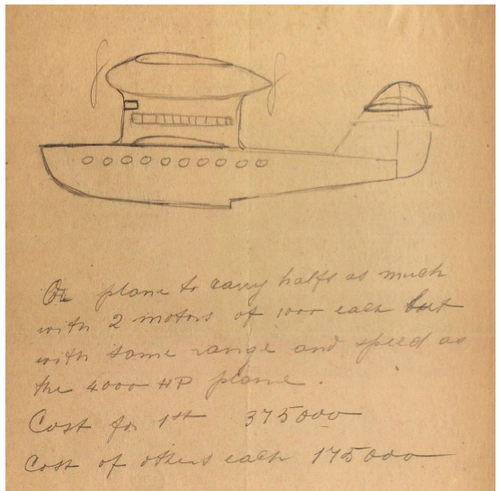 Or plane to carry halfs as much
with 2 motors of 1000 each but
with same range and speed as
the 4000 HP plane.
Cost for 1st 375000
Cost of others each 175000